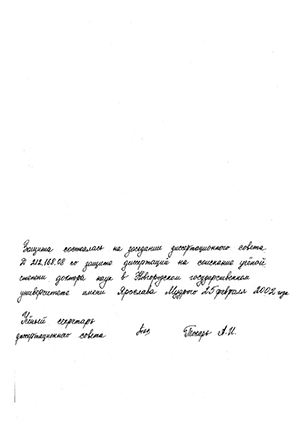 Защита состоялась на заседании диссертационного совета
Д 212.168.08 по защите диссертаций на соискание учёной
степени доктора наук в Новгородском государственном
университете имени Ярослава Мудрого 25 февраля 2002 года
Учёный секретарь
диссертационного совета А.И.